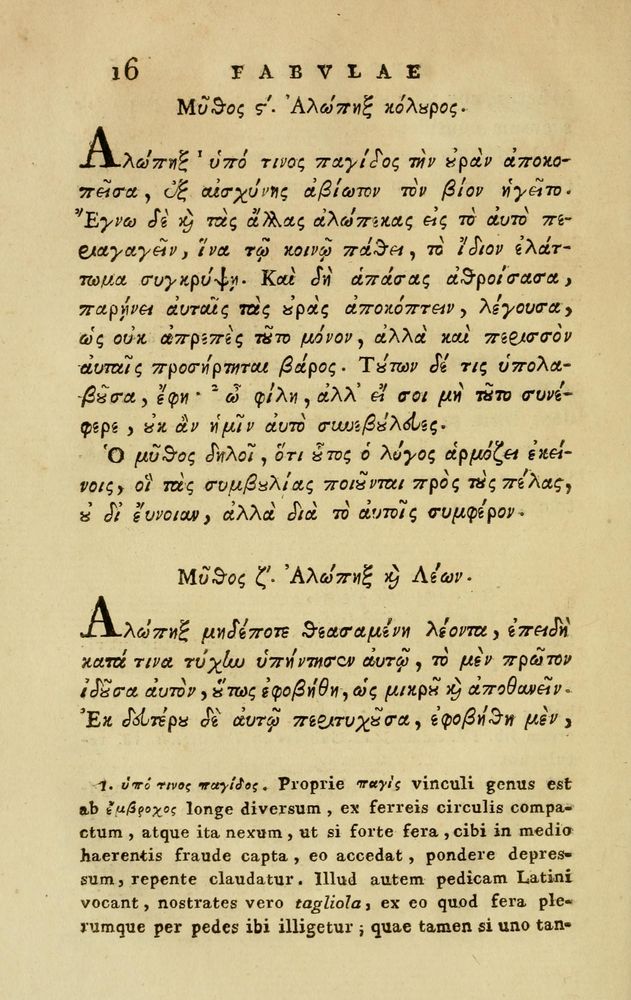 16 FABVLAE
Μῦθος ϛʹ. Ἀλώπηξ κόλουρος.
Ἀλώπηξ ¹ ὑπό τινος παγίδος τὴν οὐρὰν ἀποκο-
πεῖσα, ἐξ αἰσχύνης ἀβίωτον τὸν βίον ἡγεῖτο.
Ἔγνω δὲ καὶ τὰς ἄλλας ἀλώπεκας εἰς τὸ αὐτὸ πε-
ριαγαγεῖν, ἵνα τῷ κοινῷ πάθει, τὸ ἴδιον ἐλάτ-
τωμα συγκρύψῃ. Καὶ δὴ ἁπάσας ἀθροίσασα,
παρῄνει ἀυταῖς τὰς οὐρὰς ἀποκόπτειν, λέγουσα,
ὡς οὐκ ἀπρεπὲς τοῦτο μόνον, ἀλλὰ καὶ περισσὸν
ἀυταῖς προσήρτηται βάρος. Τούτων δέ τις ὑπολα-
βοῦσα, ἔφη· ² ὦ φίλη, ἀλλ' εἴ σοι μὴ τοῦτο συνέ-
φερε, οὐκ ἂν ἡμῖν ἀυτὸ συνεβούλευες.
Ὁ μῦθος δηλοῖ, ὅτι οὗτος ὁ λόγος ἁρμόζει ἐκεί-
νοις, οἳ τὰς συμβουλίας ποιοῦνται πρὸς τοὺς πέλας,
οὐ δι' ἔυνοιαν, ἀλλὰ διὰ τὸ ἀυτοῖς συμφέρον.
Μῦθος ζʹ. Ἀλώπηξ καὶ Λέων.
Ἀλώπηξ μηδέποτε θεασαμένη λέοντα, ἐπειδὴ
κατά τινα τύχην ὑπήντησεν ἀυτῷ, τὸ μὲν πρῶτον
ἰδοῦσα ἀυτὸν, οὕτως ἐφοβήθη, ὡς μικροῦ καὶ ἀποθανεῖν.
Ἐκ δευτέρου δὲ ἀυτῷ περιτυχοῦσα, ἐφοβήθη μὲν,
1. ὑπό τινος παγίδος. Proprie παγὶς vinculi genus est
ab ἔμβροχος longe diversum, ex ferreis circulis compa-
ctum, atque ita nexum, ut si forte fera, cibi in medio
haerentis fraude capta, eo accedat, pondere depres-
sum, repente claudatur. Illud autem pedicam Latini
vocant, nostrates vero tagliola, ex eo quod fera ple-
rumque per pedes ibi illigetur; quae tamen si uno tan-